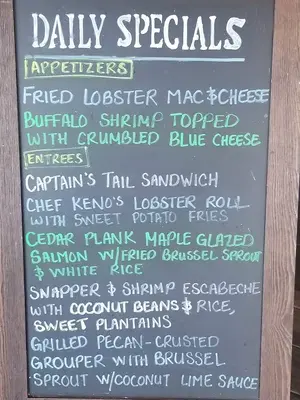 DAILY SPECIALS
APPETIZERS
FRIED LOBSTER MAC $ CHEESE
BUFFALO SHRIMP TOPPED
WITH CRUMBLED BLUE CHEESE
ENTREES
CAPTAIN'S TAIL SANDWICH
CHEF KENO'S LOBSTER ROLL
WITH SWEET POTATO FRIES
CEDAR PLANK MAPLE GLAZED
SALMON W/FRIED BRUSSEL SPROUT
$ WHITE RICE
SNAPPER $ SHRIMP ESCABECHE
WITH COCONUT BEANS $ RICE,
SWEET PLANTAINS
GRILLED PECAN-CRUSTED
GROUPER WITH BRUSSEL
SPROUT W/COCONUT LIME SAUCE